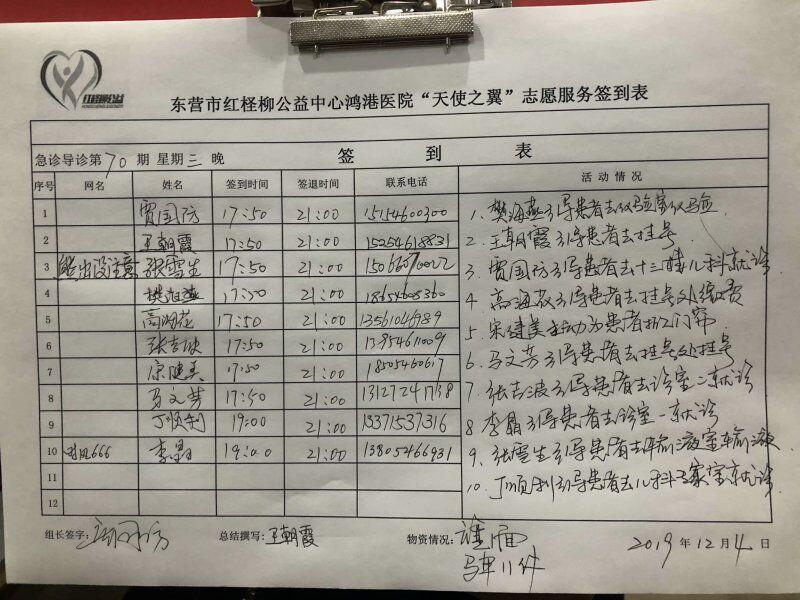 红柽柳公益
东营市红柽柳公益中心鸿港医院“天使之翼”志愿服务签到表
签到表
急诊导诊第70期 星期三 晚
序号 网名 姓名 签到时间 签退时间 联系电话 活动情况
1 贾国防 17:50 21:00 15154600300
2 王朝霞 17:50 21:00 15254618831
3 熊出没注意 张雪生 17:50 21:00
4 樊海燕 17:50 21:00 18654608360
5 高海花 17:50 21:00 13561046989
6 张吉波 17:50 21:00 13954611009
7 17:50 21:00 18505460617
8 马文芳 17:50 21:00 13127241738
9 丁顺利 19:00 21:00 13371537316
10 666 李晶 19:00 21:00 13805466931
11
12
1. 樊海燕引导患者去化验室化验
2. 王朝霞引导患者去挂号
3. 贾国防引导患者去十三楼儿科就诊
4. 引导患者去挂号处缴费
5. 主动为患者拆门帘
6. 马文芳引导患者去挂号处挂号
7. 张吉波引导患者去诊室二就诊
8 李晶引导患者去诊室一就诊
9. 张雪生引导患者去输液室输液
10. 丁顺利引导患者去儿科就诊
组长签字: 总结撰写: 王朝霞 物资情况:
马甲11件
2019 年 12 月 4 日